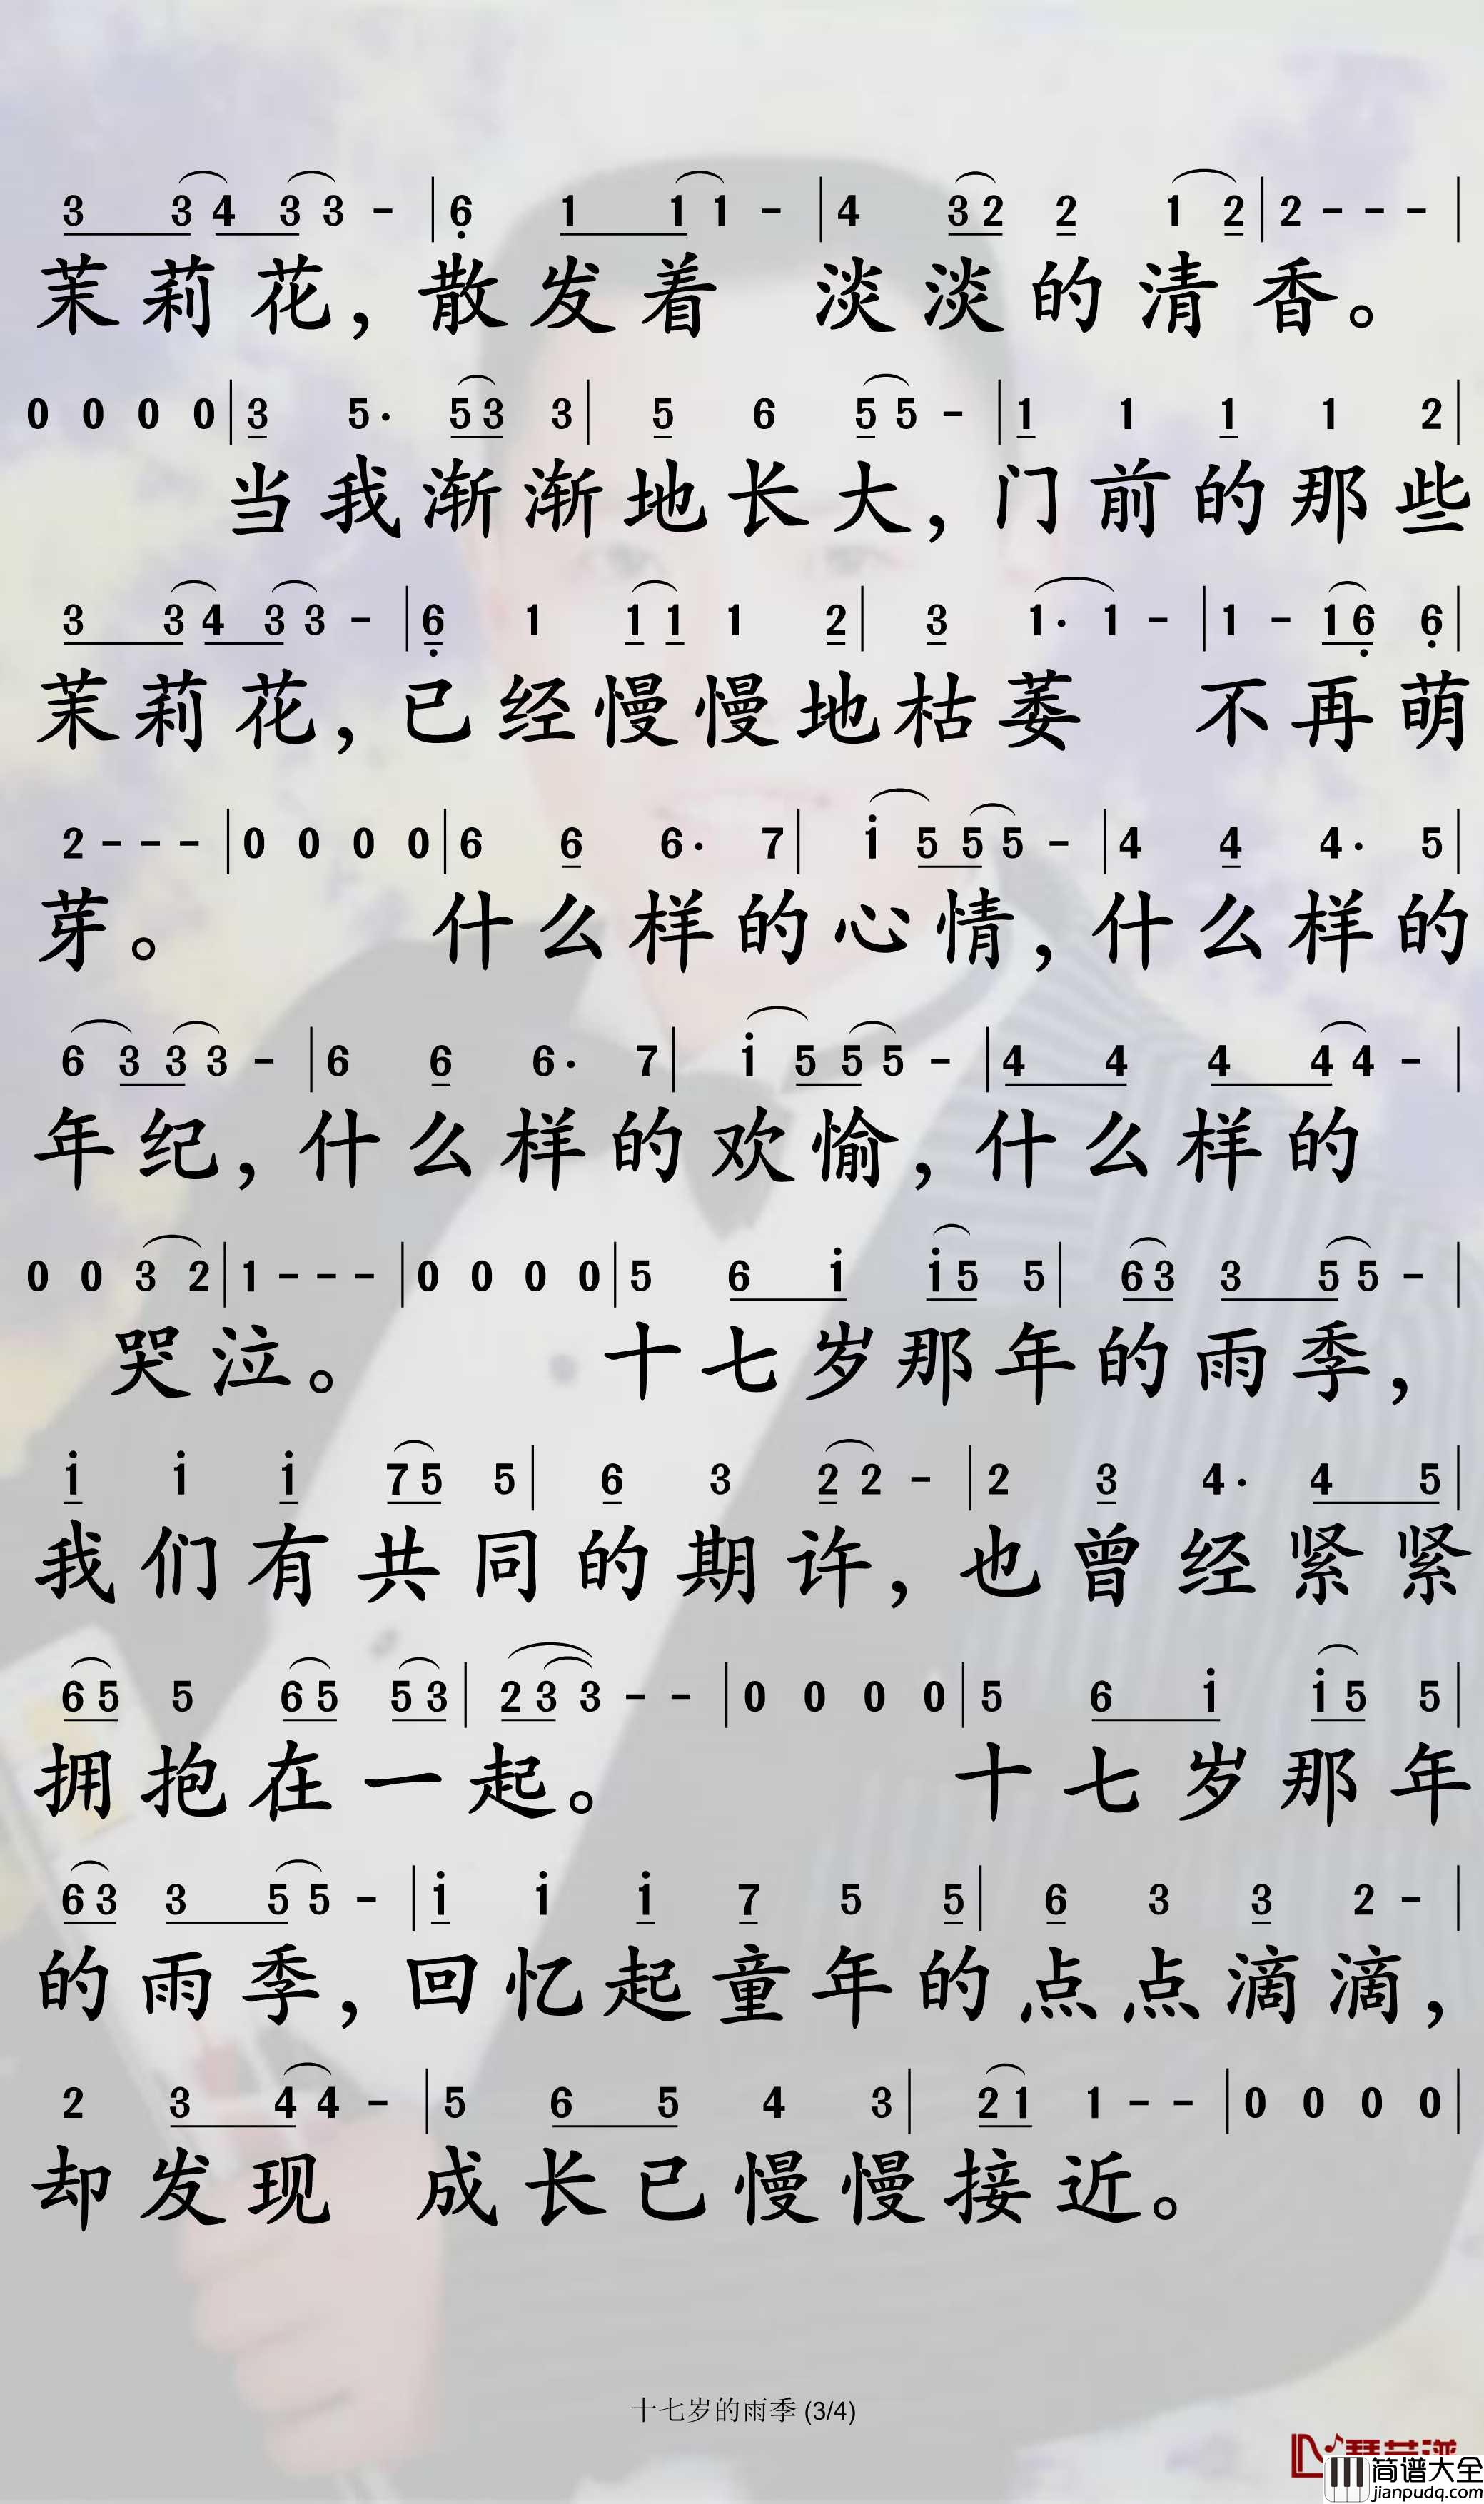 3 3 4 3 3 - | 6 1 1 1 - | 4 3 2 2 1 2 | 2 - - - |
茉莉花，散发着 淡淡的清香。
0 0 0 0 | 3 5· 5 3 3 | 5 6 5 5 - | 1 1 1 1 2 |
当我渐渐地长大，门前的那些
3 3 4 3 3 - | 6 1 1 1 1 2 | 3 1· 1 - | 1 - 1 6 6 |
茉莉花，已经慢慢地枯萎 不再萌
2 - - - | 0 0 0 0 | 6 6 6· 7 | i 5 5 5 - | 4 4 4· 5 |
芽。 什么样的心情，什么样的
6 3 3 3 - | 6 6 6· 7 | i 5 5 5 - | 4 4 4 4 4 - |
年纪，什么样的欢愉，什么样的
0 0 3 2 | 1 - - - | 0 0 0 0 | 5 6 i i 5 5 | 6 3 3 5 5 - |
哭泣。 十七岁那年的雨季，
i i i 7 5 5 | 6 3 2 2 - | 2 3 4· 4 5 |
我们有共同的期许，也曾经紧紧
6 5 5 6 5 5 3 | 2 3 3 - - | 0 0 0 0 | 5 6 i i 5 5 |
拥抱在一起。 十七岁那年
6 3 3 5 5 - | i i i 7 5 5 | 6 3 3 2 - |
的雨季，回忆起童年的点点滴滴，
2 3 4 4 - | 5 6 5 4 3 | 2 1 1 - - | 0 0 0 0 |
却发现 成长已慢慢接近。
十七岁的雨季 (3/4)
简谱大全
jianpudq.com